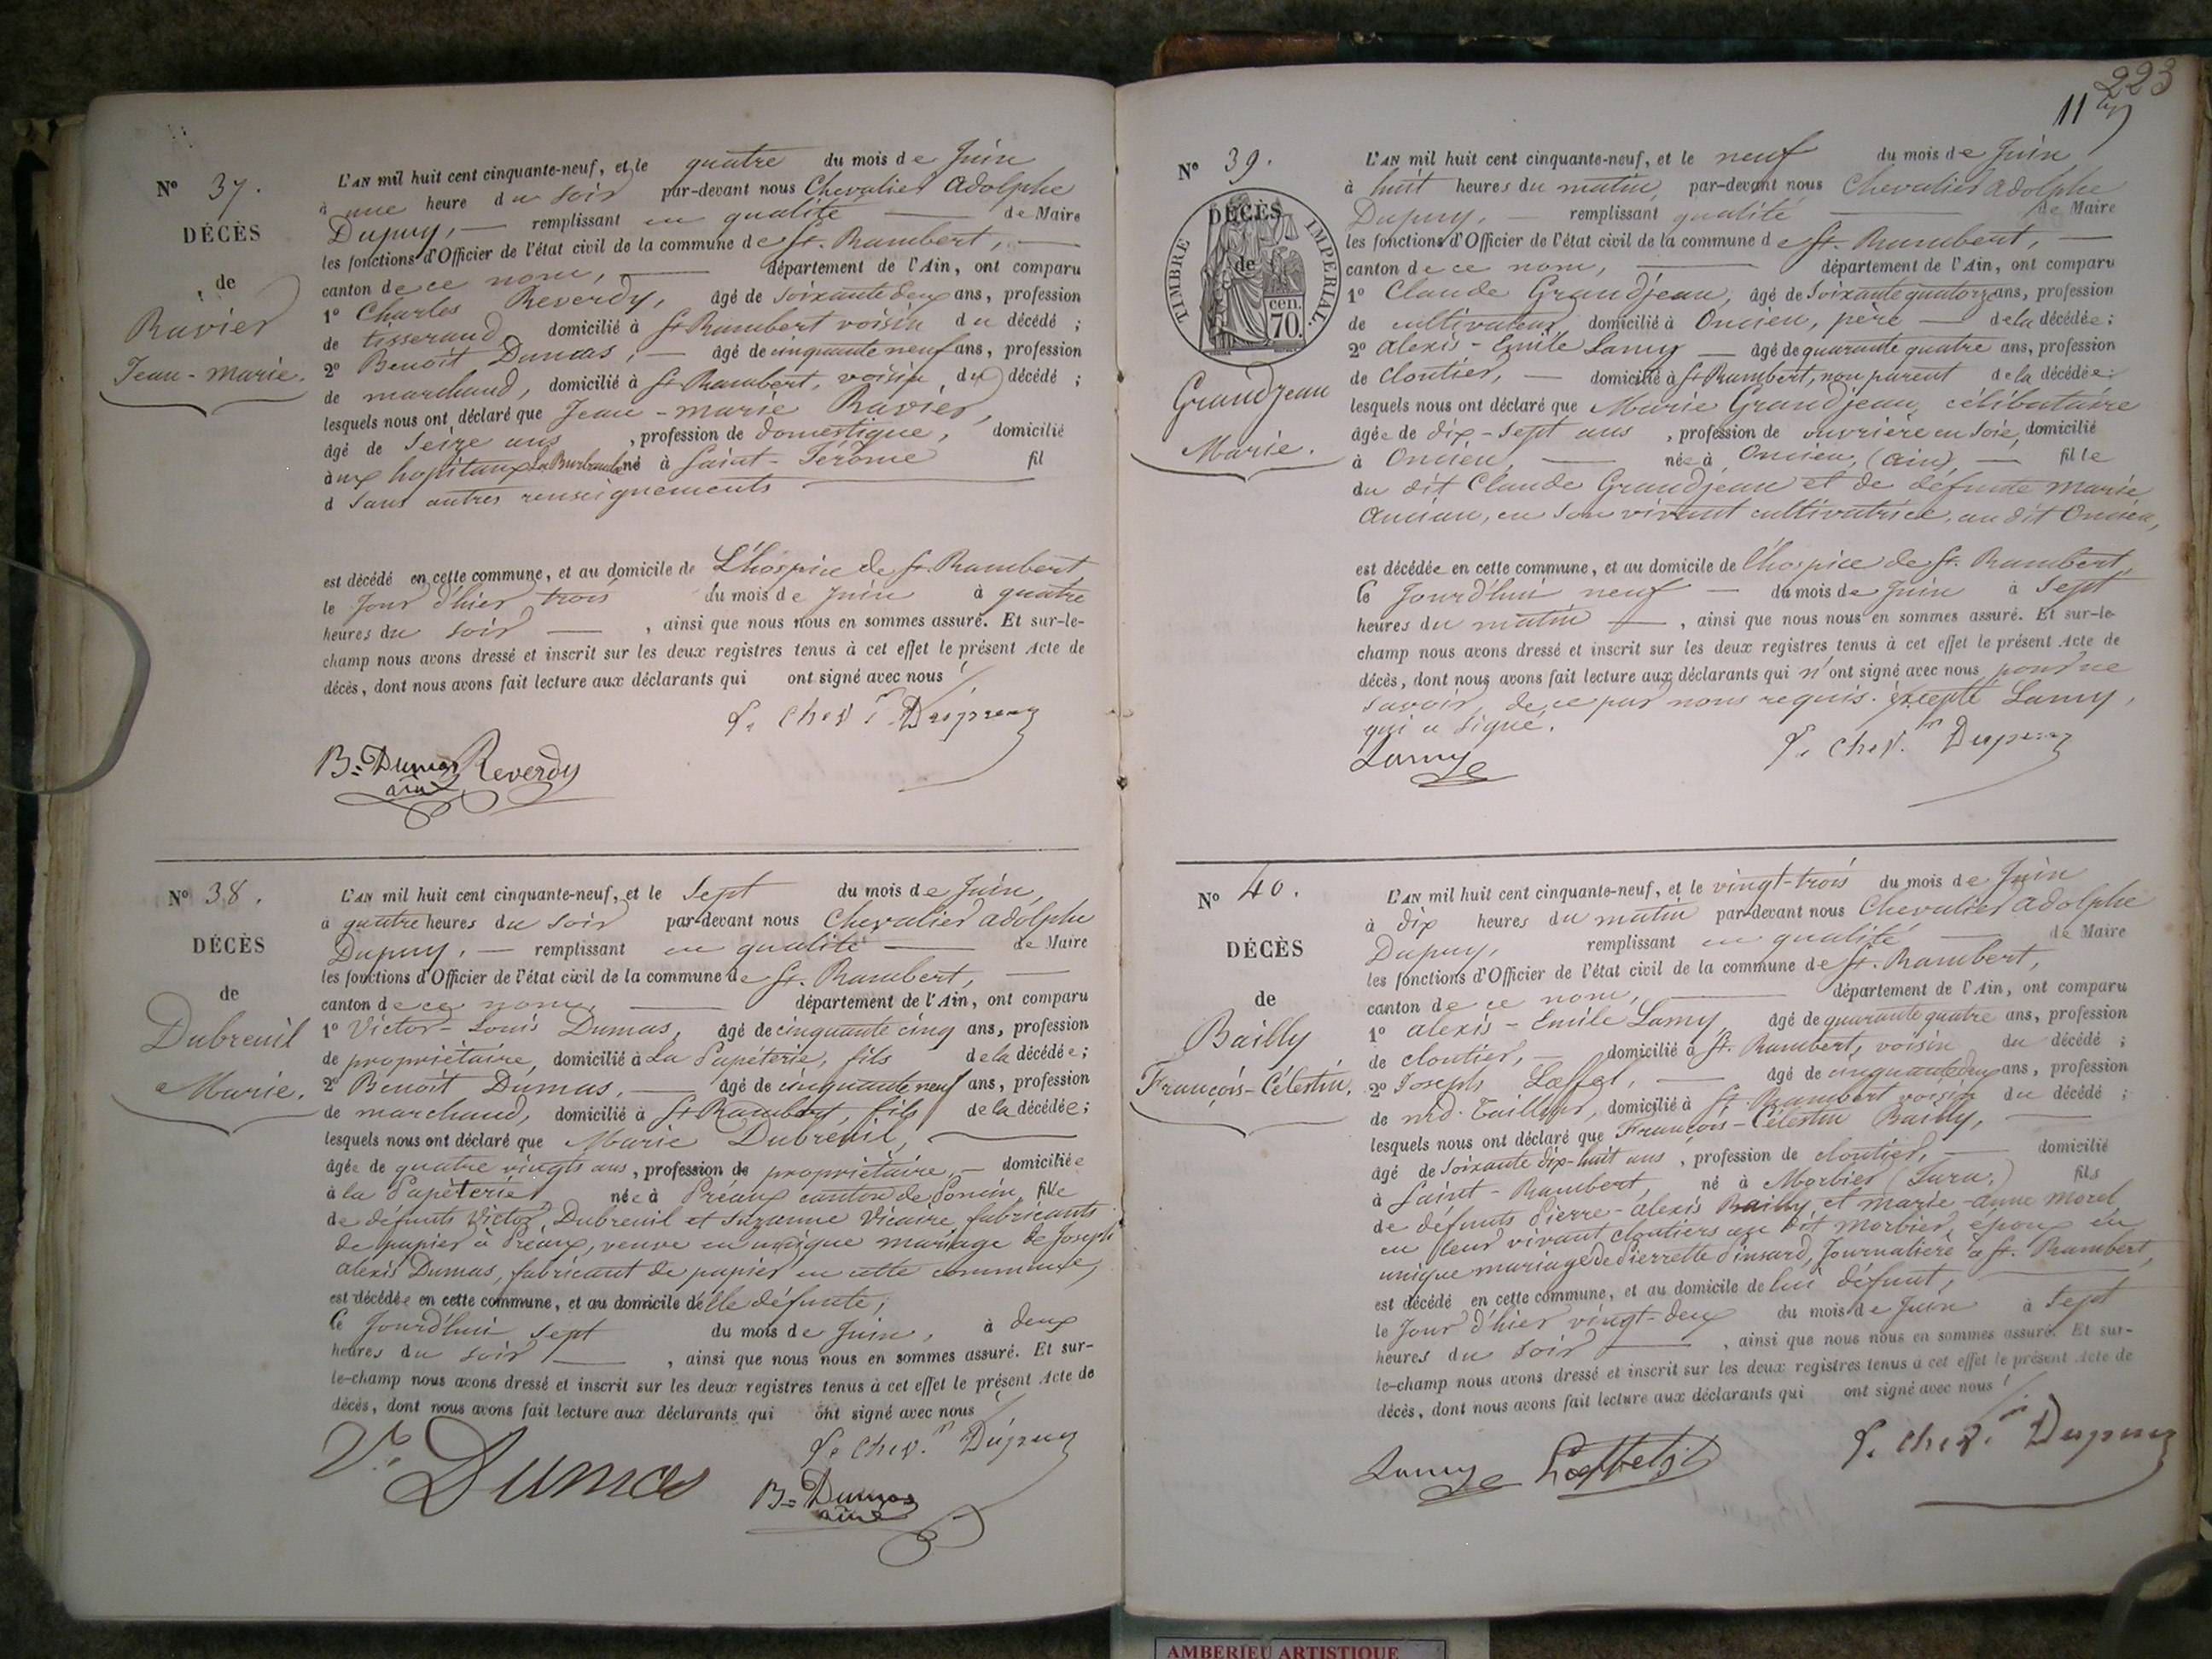 N° 37.
DÉCÈS
de
Ravier
Jean-Marie.
L'AN mil huit cent cinquante-neuf, et le quatre du mois de Juin
à une heure du soir par-devant nous Chevalier Adolphe
Dupuy, — remplissant en qualité — de Maire
les fonctions d'Officier de l'état civil de la commune de St. Rambert, —
canton de ce nom, — département de l'Ain, ont comparu
1° Charles Reverdy, âgé de soixante deux ans, profession
de tisserand domicilié à St Rambert voisin du décédé ;
2° Benoit Dumas, — âgé de cinquante neuf ans, profession
de marchand, domicilié à St Rambert, voisin du décédé ;
lesquels nous ont déclaré que Jean-Marie Ravier,
âgé de seize ans , profession de domestique, domicilié
aux hopitaux né à Saint-Jérôme fil
d sans autres renseignements —
est décédé en cette commune, et au domicile de L'hospice de St. Rambert
le Jour d'hier trois du mois de Juin à quatre
heures du soir — , ainsi que nous nous en sommes assuré. Et sur-le-
champ nous avons dressé et inscrit sur les deux registres tenus à cet effet le présent Acte de
décès, dont nous avons fait lecture aux déclarants qui ont signé avec nous
Le Chev.r Dupuy
B= Dumas Reverdy
ainé
N° 38.
DÉCÈS
de
Dubreuil
Marie.
L'AN mil huit cent cinquante-neuf, et le sept du mois de Juin,
à quatre heures du soir par-devant nous Chevalier Adolphe
Dupuy, — remplissant en qualité — de Maire
les fonctions d'Officier de l'état civil de la commune de St. Rambert, —
canton de ce nom, — département de l'Ain, ont comparu
1° Victor-Louis Dumas, âgé de cinquante cinq ans, profession
de propriétaire, domicilié à La Papéterie, fils de la décédée ;
2° Benoit Dumas, — âgé de cinquante neuf ans, profession
de marchand, domicilié à St Rambert, fils de la décédée ;
lesquels nous ont déclaré que Marie Dubreuil, —
âgée de quatre vingts ans, profession de propriétaire, — domiciliée
à la Papèterie, née à Préaux canton de Poncin, fille
de défunts Victor Dubreuil et Suzanne Vicaire, fabricants
de papier à Préaux, veuve en unique mariage de Joseph
Alexis Dumas, fabricant de papier en cette commune,
est décédée en cette commune, et au domicile de elle défunte ;
le Jourd'hui sept du mois de Juin, à deux
heures du soir — , ainsi que nous nous en sommes assuré. Et sur-
le-champ nous avons dressé et inscrit sur les deux registres tenus à cet effet le présent Acte de
décès, dont nous avons fait lecture aux déclarants qui ont signé avec nous
Le Chev.r Dupuy
Vr. Dumas
B= Dumas
ainé
223
11
N° 39.
TIMBRE IMPERIAL.
70 cen.
DÉCÈS
de
Grandjean
Marie.
L'AN mil huit cent cinquante-neuf, et le neuf du mois de Juin
à huit heures du matin par-devant nous Chevalier Adolphe
Dupuy, — remplissant qualité — de Maire
les fonctions d'Officier de l'état civil de la commune de St. Rambert, —
canton de ce nom, — département de l'Ain, ont comparu
1° Claude Grandjean, âgé de soixante quatorze ans, profession
de cultivateur, domicilié à Oncieu, père — de la décédée ;
2° Alexis-Emile Lamy — âgé de quarante quatre ans, profession
de cloutier, — domicilié à St Rambert, non parent de la décédée ;
lesquels nous ont déclaré que Marie Grandjean, célibataire
âgée de dix-sept ans , profession de ouvrière en soie, domicilié
à Oncieu, — née à Oncieu, (Ain), — fille
du dit Claude Grandjean et de défunte Marie
Ancian, en son vivant cultivatrice, au dit Oncieu,
est décédée en cette commune, et au domicile de l'hospice de St. Rambert,
le Jourd'hui neuf — du mois de Juin à sept
heures du matin — , ainsi que nous nous en sommes assuré. Et sur-le-
champ nous avons dressé et inscrit sur les deux registres tenus à cet effet le présent Acte de
décès, dont nous avons fait lecture aux déclarants qui n'ont signé avec nous pour ne
savoir, de ce par nous requis. Excepté Lamy,
qui a signé.
Lamy
Le Chev.r Dupuy
N° 40.
DÉCÈS
de
Bailly
François-Célestin.
L'AN mil huit cent cinquante-neuf, et le vingt-trois du mois de Juin
à dix heures du matin par-devant nous Chevalier Adolphe
Dupuy, remplissant en qualité — de Maire
les fonctions d'Officier de l'état civil de la commune de St. Rambert,
canton de ce nom, — département de l'Ain, ont comparu
1° Alexis-Emile Lamy âgé de quarante quatre ans, profession
de cloutier, — domicilié à St. Rambert, voisin du décédé ;
2° Joseph Lœffel, — âgé de cinquante deux ans, profession
de md. Tailleur, domicilié à St. Rambert voisin du décédé ;
lesquels nous ont déclaré que François-Célestin Bailly, —
âgé de soixante dix-huit ans , profession de cloutier, — domicilié
à Saint-Rambert, né à Morbier (Jura,) fils
de défunts Pierre-Alexis Bailly et Marie-Anne Morel
en leur vivant cloutiers au dit Morbier, époux en
unique mariage de Pierrette Pinsard, Journalière à St. Rambert,
est décédé en cette commune, et au domicile de lui défunt, —
le Jour d'hier vingt-deux du mois de Juin à sept
heures du soir — , ainsi que nous nous en sommes assuré. Et sur-
le-champ nous avons dressé et inscrit sur les deux registres tenus à cet effet le présent Acte de
décès, dont nous avons fait lecture aux déclarants qui ont signé avec nous
Le Chev.r Dupuy
Lamy Lœffel
AMBERIEU ARTISTIQUE